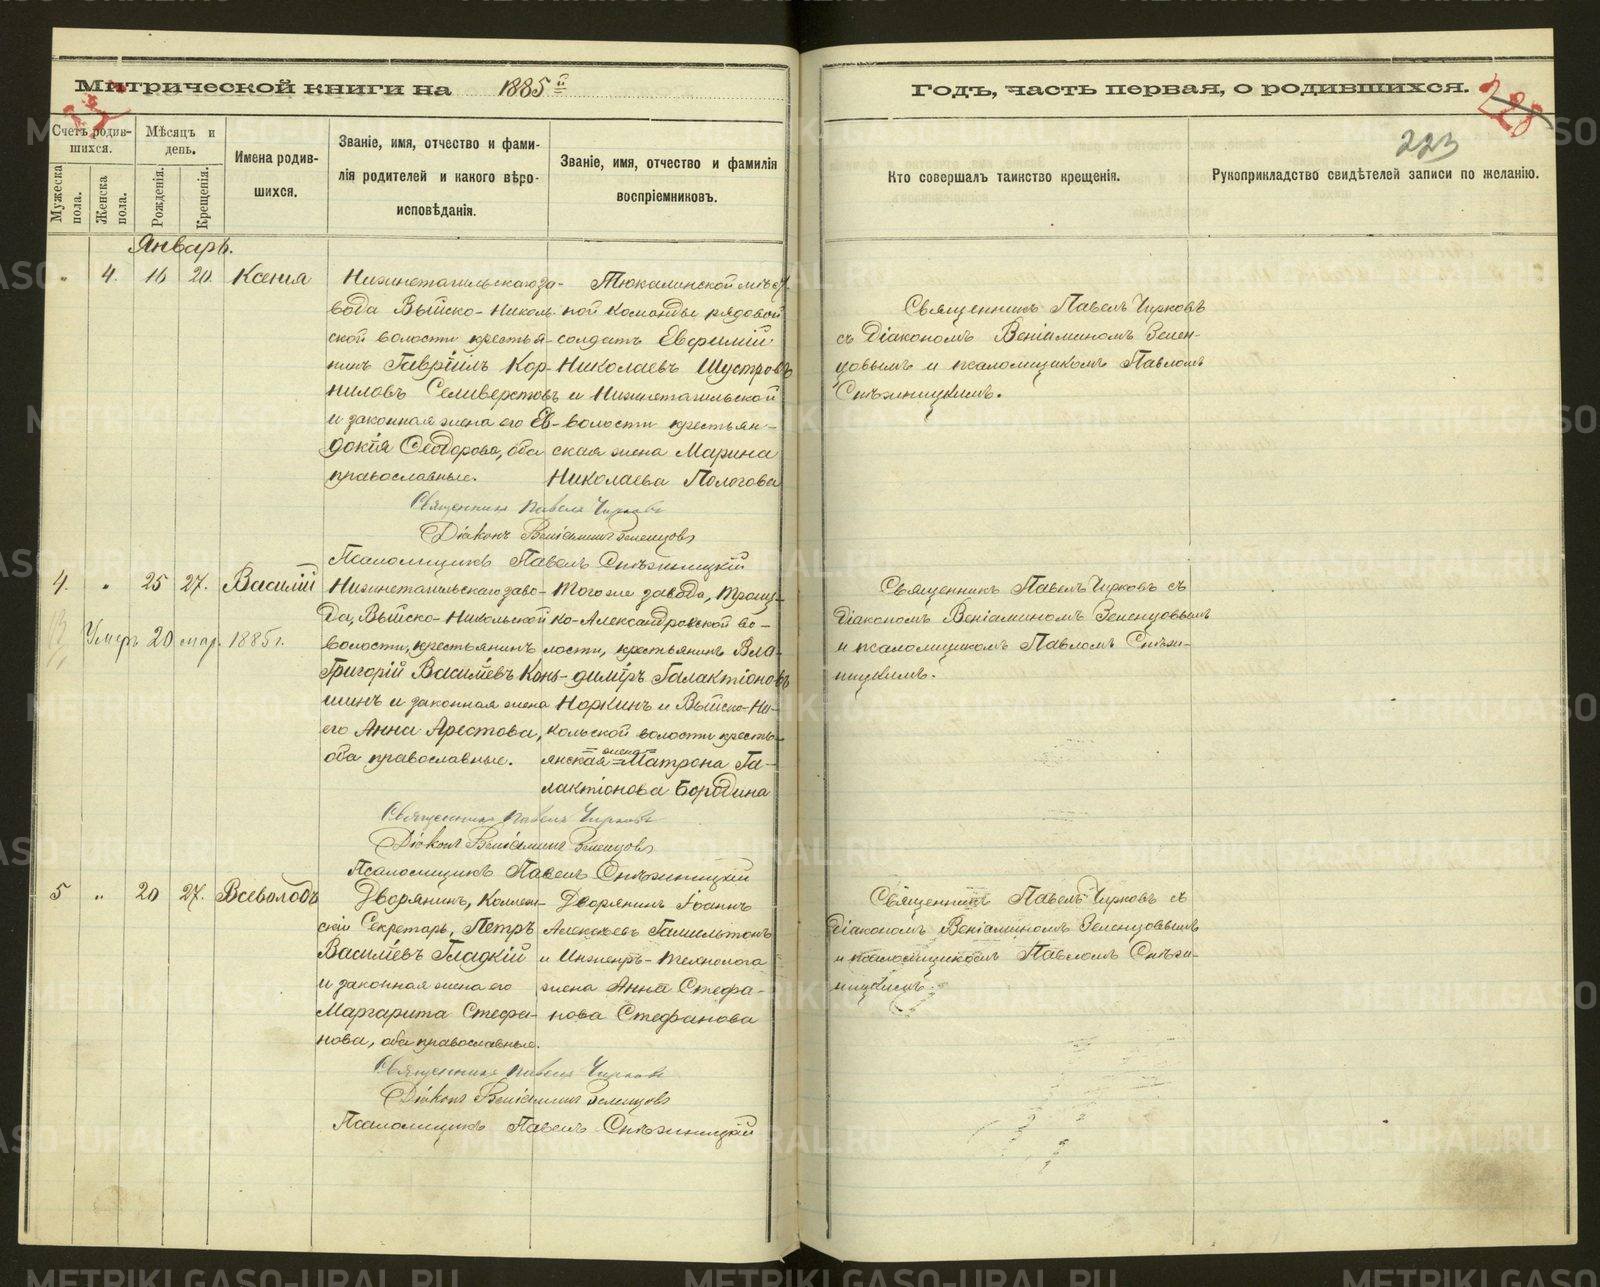 Метрической книги на 1885 й
Годъ, часть первая, о родившихся.
228
223
Счетъ родив-
шихся.
Мужеска пола.
Женска пола.
Мѣсяцъ и
день.
Рожденія.
Крещенія.
Имена родив-
шихся.
Званіе, имя, отчество и фами-
лія родителей и какого вѣро-
исповѣданія.
Званіе, имя, отчество и фамилія
воспріемниковъ.
Кто совершалъ таинство крещенія.
Рукоприкладство свидѣтелей записи по желанію.
Январь.
" 4. 16 20. Ксенія
Нижнетагильскаго за-
вода Выйско-Николь-
ской волости крестья-
нинъ Гавріилъ Кор-
ниловъ Селиверстовъ
и законная жена его Ев-
докія Ѳеодорова, оба
православные.
Тюкалинской мѣст-
ной команды рядовой
солдатъ Евфимій
Николаевъ Шустровъ
и Нижнетагильской
волости крестьян-
ская жена Марина
Николаева Пологова
Священникъ Павелъ Чирковъ
съ Діакономъ Веніаминомъ Зелен-
цовымъ и псаломщикомъ Павломъ
Снѣжницкимъ.
Священникъ Павелъ Чирковъ
Діаконъ Веніаминъ Зеленцовъ
Псаломщикъ Павелъ Снѣжницкій
4. " 25 27. Василій
Умеръ 20 мар. 1885 г.
Нижнетагильскаго заво-
да, Выйско-Никольской
волости, крестьянинъ
Григорій Васильевъ Конь-
шинъ и законная жена
его Анна Арестова,
оба православные.
Того же завода, Троиц-
ко-Александровской во-
лости, крестьянинъ Вла-
димiръ Галактіоновъ
Норкинъ и Выйско-Ни-
кольской волости кресть-
янская жена Матрона Га-
лактіонова Бородина
Священникъ Павелъ Чирковъ съ
Діакономъ Веніаминомъ Зеленцовымъ
и псаломщикомъ Павломъ Снѣж-
ницкимъ.
Священникъ Павелъ Чирковъ
Діаконъ Веніаминъ Зеленцовъ
Псаломщикъ Павелъ Снѣжницкій
5 " 20 27. Всеволодъ
Дворянинъ, Коллеж-
скій Секретарь, Петръ
Васильевъ Гладкій
и законная жена его
Маргарита Стефа-
нова, оба православные.
Дворянинъ Іоаннъ
Алексѣевъ Гамильтонъ
и Инженеръ-технолога
жена Анна Стефа-
нова Стефанова
Священникъ Павелъ Чирковъ съ
Діакономъ Веніаминомъ Зеленцовымъ
и псаломщикомъ Павломъ Снѣж-
ницкимъ.
Священникъ Павелъ Чирковъ
Діаконъ Веніаминъ Зеленцовъ
Псаломщикъ Павелъ Снѣжницкій
METRIKI.GASO-URAL.RU